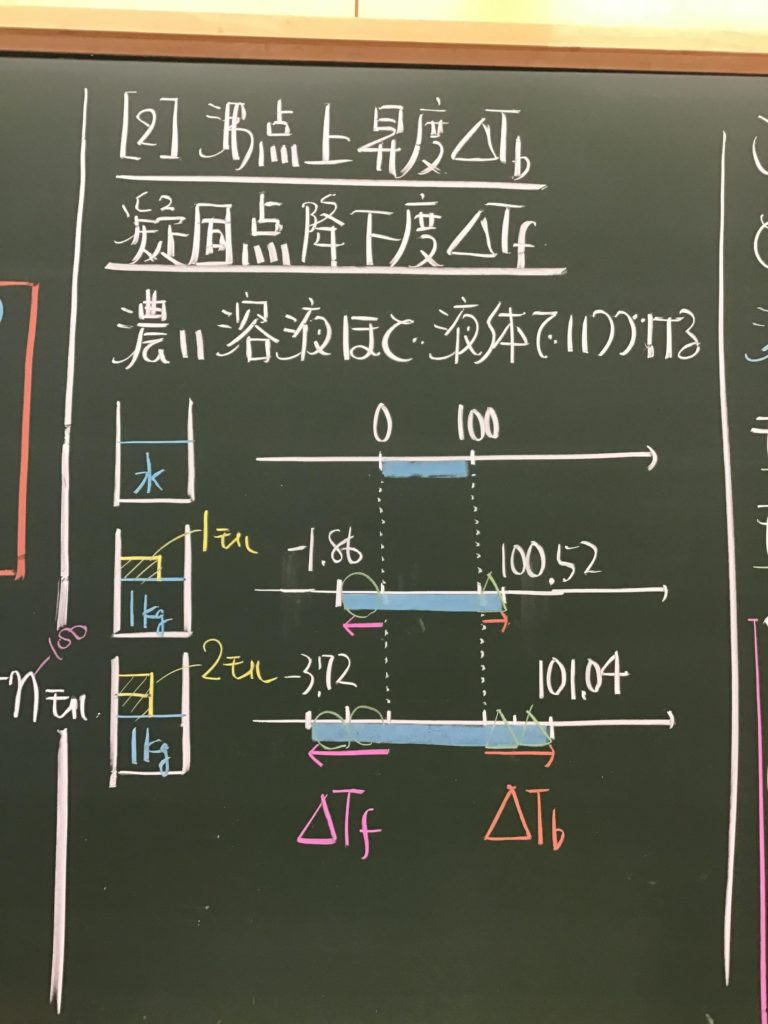 [2] 沸点上昇度ΔTb
凝固点降下度ΔTf
濃い溶液ほど液体でいつづける
0 100
水
1モル
-1.86 100.52
1kg
2モル
-3.72 101.04
1kg
ΔTf ΔTb
100
nモル